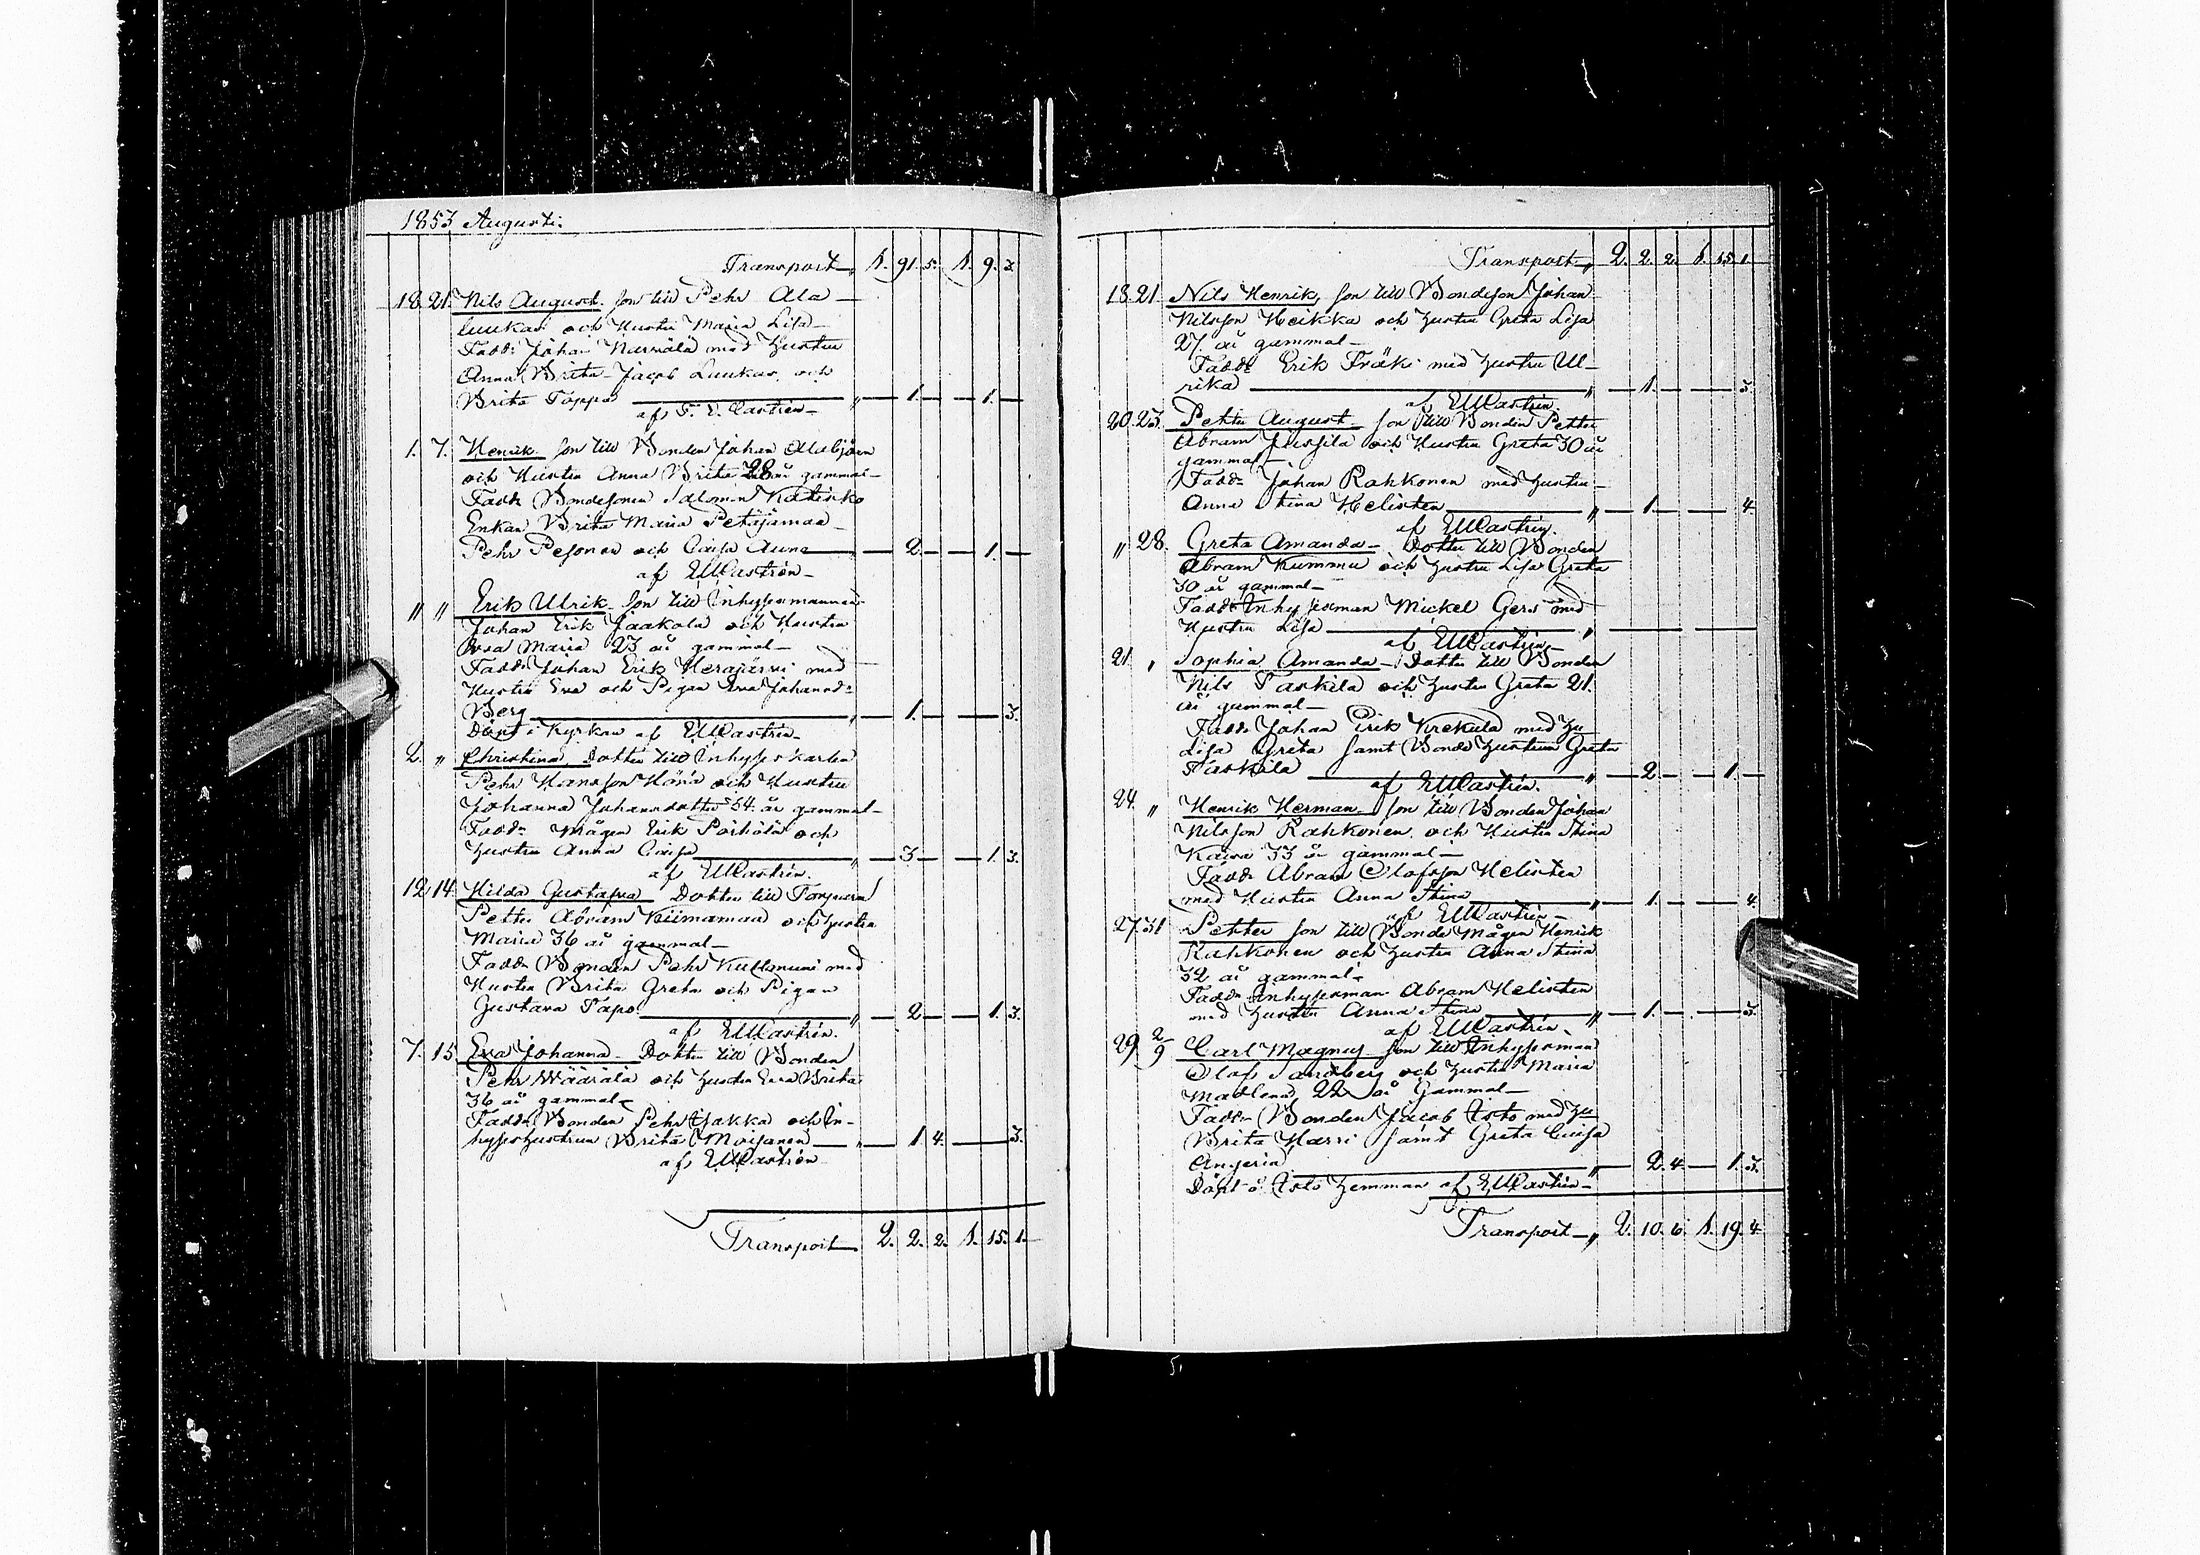 1853 Augusti.
Transport 1. 91. 5. 1. 9. 3.
18. 21. Nils August. Son till Pehr Ala
luukas och Hustru Maria Lisa
Fadd: Johan med Hustru
Anna Brita Jacob Luukas och
Brita Tappo " — 1. — — 1. —
af F. E. Castrén
1. 7. Henrik Son till Bonden Johan Alabjörn
och Hustru Anna Brita 28 år gammal
Fadd: Bondesonen Salomon
Enkan Brita Maria Petäjämaa
Pehr Pesonen och Caisa " — 2. — — 1. —
af EMCastrén
" " Erik Ulrik. Son till Inhysesmannen
Johan Erik Jaakola och Hustru
Eva Maria 23 år gammal
Fadd: Johan Erik Herajärvi med
Hustru Eva och Pigan Eva Johansd:
Berg " — 1. — — 3.
Döpt i Kyrkan af EMCastrén
2. " Christina Dotter till Inhyseskarlen
Pehr Hansson och Hustru
Johanna Johansdotter 34 år gammal
Fadd: Mågen Erik och
Hustru Anna Caisa " — 3 — — 1. 3.
af EMCastrén.
12. 14. Hilda Gustafva Dotter till Torparen
Petter Abram Kiimamaa och Hustru
Maria 36 år gammal
Fadd: Bonden Pehr med
Hustru Brita Greta och Pigan
Gustava Tapo " — 2 — — 1. 3.
af EMCastrén.
7. 15. Eva Johanna Dotter till Bonden
Pehr Wäärälä och Hustru Eva Brita
36 år gammal
Fadd: Bonden Pehr och In-
hyses hustrun Brita Moisanen " — 1. 4. — 3.
af EMCastrén
Transport 2. 2. 2. 1. 15. 1.
Transport " 2. 2. 2. 1. 15. 1.
18. 21. Nils Henrik, Son till Bondeson Johan
Nilsson Heikka och Hustru Greta Lisa
27. år gammal
Fadd: Erik Fräki med Hustru Ul-
rika " — 1. — — 3.
af EMCastrén
20. 23. Petter August. Son till Bonden Petter
Abram Jussila och Hustru Greta 30 år
gammal
Fadd: Johan Rahkonen med Hustru
Anna Stina Helisten " — 1. — — 4.
af EMCastrén.
" 28. Greta Amanda Dotter till Bonden
Abram Kummu och Hustru Lisa Greta
30 år gammal
Fadd: Inhysesman Mickel Gers med
Hustru Lisa "
af EMCastrén
21. " Sophia Amanda Dotter till Bonden
Nils Taskila och Hustru Greta 21.
år gammal
Fadd: Johan Erik Krekula med Hu
Lisa Greta samt Bonde Hustrun Greta
Taskila " — 2. — — 1. —
af EMCastrén.
24. " Henrik Herman Son till Bonden Johan
Nilsson Rahkonen och Hustru Stina
Kaisa 33 år gammal
Fadd: Abram Olofsson Helisten
med Hustru Anna Stina " — 1. — — 4.
af EMCastrén
27. 31 Petter Son till Bonde Mågen Henrik
Rahkonen och Hustru Anna Stina
32 år gammal
Fadd: Inhysesman Abram Helisten
med Hustru Anna Stina " — 1. — — 3.
af EMCastrén
29. 2/9 Carl Magnus Son till Inhysesman
Olof Sandberg och Hustru Maria
Madlena 22 år Gammal
Fadd: Bonden Jacob Asto med Hu
Brita Harri samt Greta Caisa
Angeria " — 2. 4. — 1. 3.
Döpt å Asto Hemman af EMCastrén
Transport " 2. 10. 6. 1. 19. 4